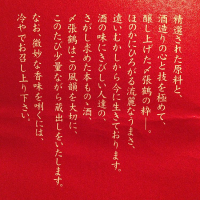 精選された原料と、
酒造りの心と技を極めて、
醸し上げた〆張鶴の粋―。
ほのかにひろがる流麗なうまさ、
遠いむかしから今に生きております。
酒の味にきびしい人達の、
さがし求めた本もの、酒、
〆張鶴はこの風韻を大切に、
このたび少量ながら蔵出しをいたします。
なお、微妙な香味を唎くには、
冷やでお召し上り下さい。